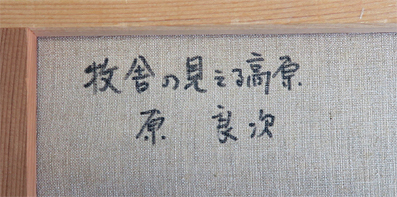 牧舎の見える高原
原 良次